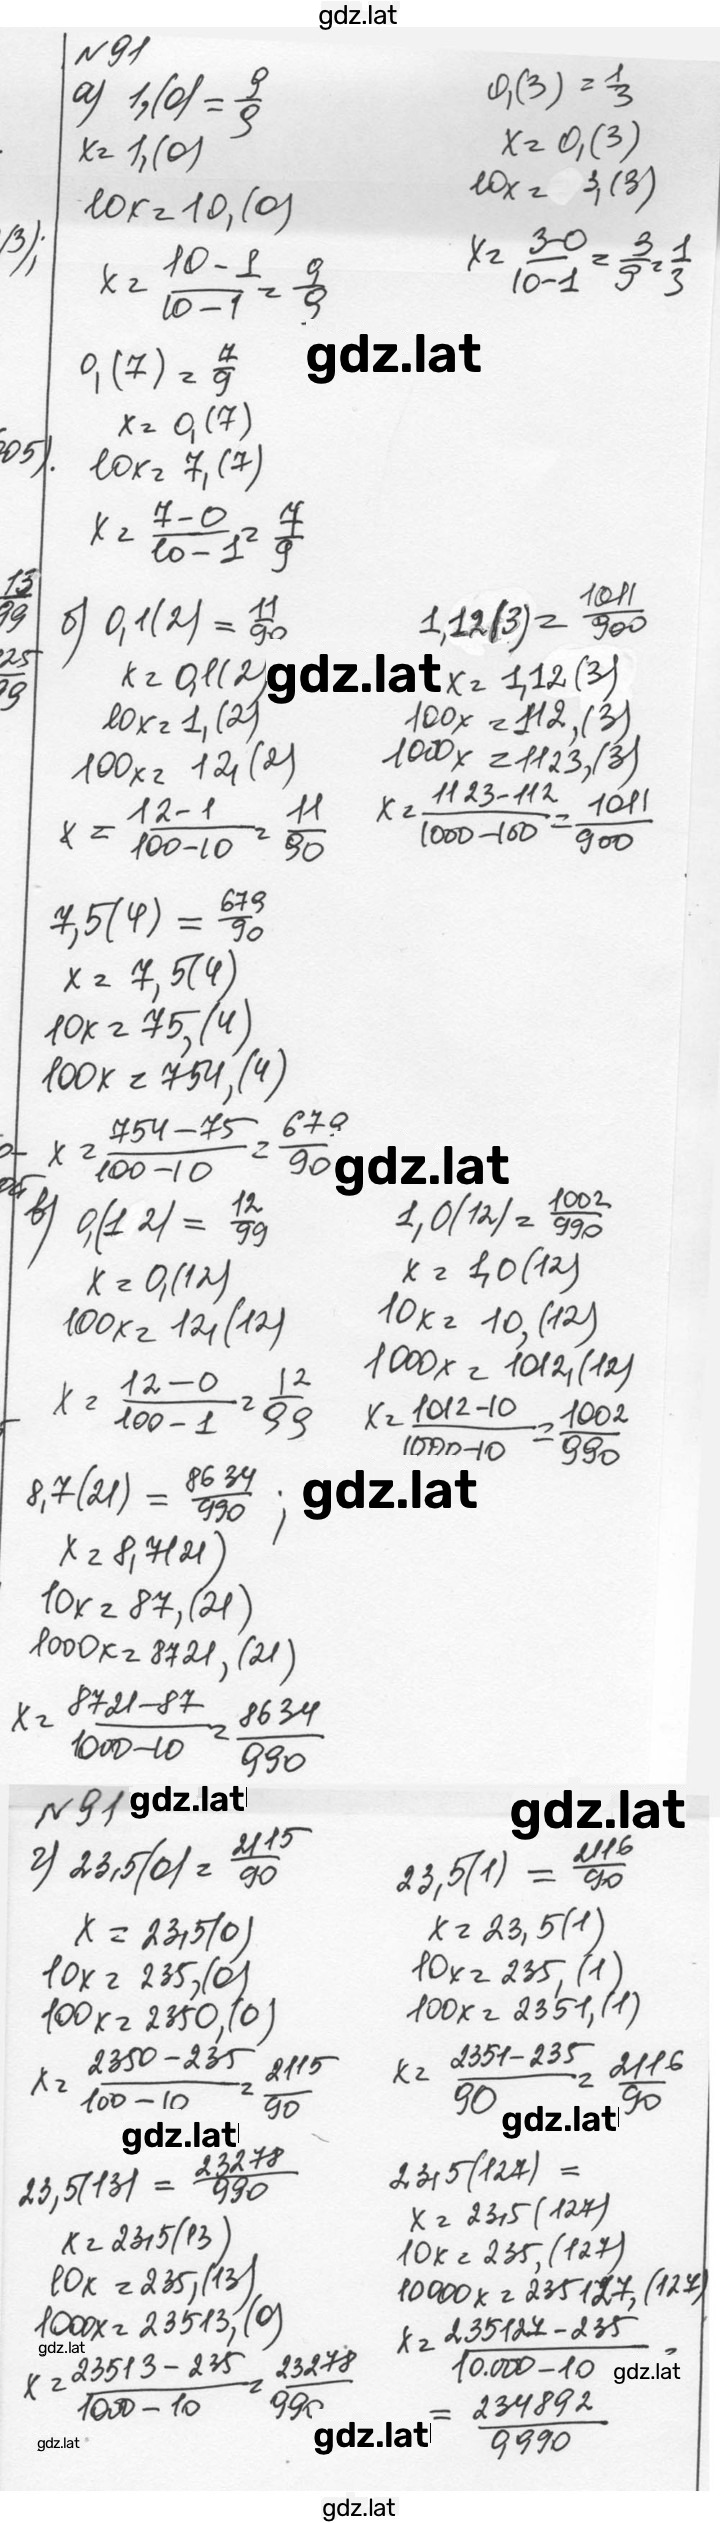 gdz.lat
№91
а) 1,(0) = 9/9
x = 1,(0)
10x = 10,(0)
x = (10-1)/(10-1) = 9/9
0,(3) = 1/3
x = 0,(3)
10x = 3,(3)
x = (3-0)/(10-1) = 3/9 = 1/3
gdz.lat
0,(7) = 7/9
x = 0,(7)
10x = 7,(7)
x = (7-0)/(10-1) = 7/9
б) 0,1(2) = 11/90
x = 0,1(2)
10x = 1,(2)
100x = 12,(2)
x = (12-1)/(100-10) = 11/90
gdz.lat
1,12(3) = 1011/900
x = 1,12(3)
100x = 112,(3)
1000x = 1123,(3)
x = (1123-112)/(1000-100) = 1011/900
7,5(4) = 679/90
x = 7,5(4)
10x = 75,(4)
100x = 754,(4)
x = (754-75)/(100-10) = 679/90
gdz.lat
в) 0,(12) = 12/99
x = 0,(12)
100x = 12,(12)
x = (12-0)/(100-1) = 12/99
1,0(12) = 1002/990
x = 1,0(12)
10x = 10,(12)
1000x = 1012,(12)
x = (1012-10)/(1000-10) = 1002/990
8,7(21) = 8634/990 ;
gdz.lat
x = 8,7(21)
10x = 87,(21)
1000x = 8721,(21)
x = (8721-87)/(1000-10) = 8634/990
№91
gdz.lat
gdz.lat
г) 23,5(0) = 2115/90
x = 23,5(0)
10x = 235,(0)
100x = 2350,(0)
x = (2350-235)/(100-10) = 2115/90
23,5(1) = 2116/90
x = 23,5(1)
10x = 235,(1)
100x = 2351,(1)
x = (2351-235)/90 = 2116/90
gdz.lat
gdz.lat
23,5(13) = 23278/990
x = 23,5(13)
10x = 235,(13)
1000x = 23513,(0)
gdz.lat
x = (23513-235)/(1000-10) = 23278/990
23,5(127) =
x = 23,5(127)
10x = 235,(127)
10000x = 235127,(127)
x = (235127-235)/(10.000-10) =
gdz.lat
= 234892/9990
gdz.lat
gdz.lat
gdz.lat